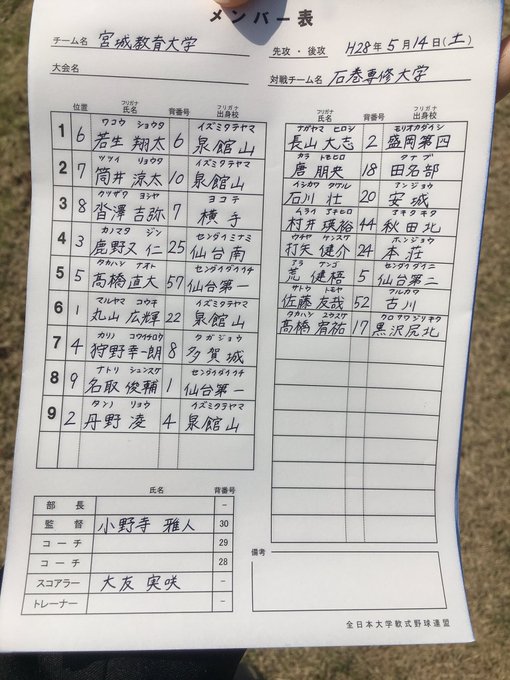 メンバー表
チーム名 宮城教育大学
先攻・後攻 H28年5月14日(土)
大会名
対戦チーム名 石巻専修大学
位置 フリガナ 氏名 背番号 フリガナ 出身校
フリガナ 氏名 背番号 フリガナ 出身校
ワコウ ショウタ イズミタテヤマ
1 6 若生 翔太 6 泉館山
ツツイ リョウタ イズミタテヤマ
2 7 筒井 涼太 10 泉館山
クツザワ ヨシヤ ヨコテ
3 8 沓澤 吉弥 7 横手
カノマタ ジン センダイミナミ
4 3 鹿野又 仁 25 仙台南
タカハシ ナオト センダイダイイチ
5 5 髙橋 直大 57 仙台第一
マルヤマ コウキ イズミタテヤマ
6 1 丸山 広輝 22 泉館山
カリノ コウイチロウ タガジョウ
7 4 狩野 幸一朗 8 多賀城
ナトリ シュンスケ センダイダイイチ
8 9 名取 俊輔 1 仙台第一
タンノ リョウ イズミタテヤマ
9 2 丹野 凌 4 泉館山
ナガヤマ ヒロシ モリオカダイシ
長山 大志 2 盛岡第四
カラ トモヒロ タナブ
唐 朋央 18 田名部
イシカワ タケル アンジョウ
石川 壮 20 安城
ムライ アキヒロ アキタキタ
村井 瑛裕 44 秋田北
ウチヤ ケンスケ ホンジョウ
打矢 健介 24 本荘
アラ ケンゴ センダイダイニ
荒 健梧 5 仙台第二
サトウ トモヤ フルカワ
佐藤 友哉 52 古川
タカハシ ユウスケ クロサワジリキタ
髙橋 宥祐 17 黒沢尻北
氏名 背番号
部長 -
監督 小野寺 雅人 30
コーチ 29
コーチ 28
スコアラー 大友 実咲 -
トレーナー -
備考
全日本大学軟式野球連盟